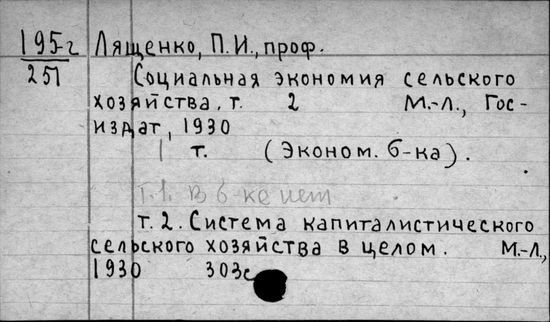 195-г Лященко, П.И., проф.
251 Социальная экономия сельского
хозяйства. т. 2 М.-Л., Гос-
издат, 1930
1 т. (Эконом. б-ка).
т.1. в б-ке нет
т. 2. Система капиталистического
сельского хозяйства в целом. М.-Л.,
1930 303с